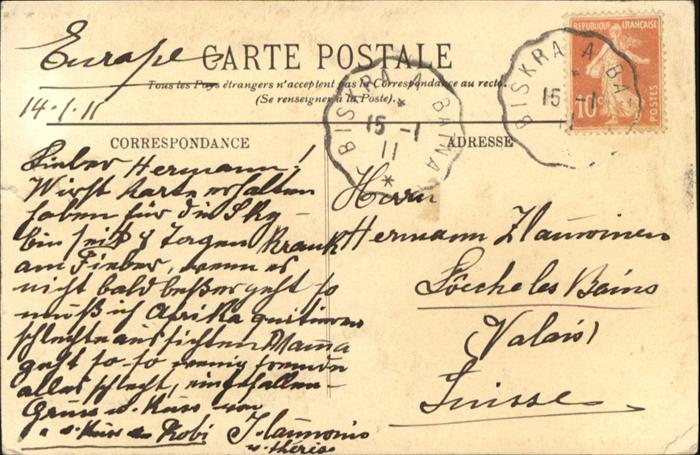 Europe
CARTE POSTALE
Tous les Pays étrangers n'acceptent pas la Correspondance au recto.
(Se renseigner à la Poste).
14.1.11
CORRESPONDANCE
Lieber Hermann!
Wirst Karte erhalten
haben für die Sky
bin seit 8 Tagen Krank
am Fieber, wenn es
nicht bald beßer geht so
muß ich Afrika quitieren
schlechte aussichten Mama
geht so-so wenig
alles schlecht, eingefallen
Gruss u. Kuss von
u. Kuss an Robi
u. Thérèse
ADRESSE
Herrn
Hermann
Loèche les Bains
(Valais)
Suisse
BISKRA A BATNA
15 -1
11
BISKRA A BAT
15 -1
11
REPUBLIQUE FRANÇAISE
10
POSTES